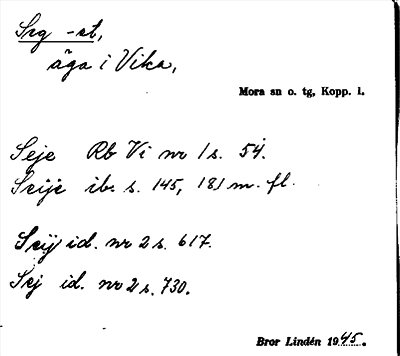 Seg -et,
äga i Vika,
Mora sn o. tg, Kopp. l.
Seje Rb Vi nr 1 s. 54.
Seije ib. s. 145, 181 m. fl.
Seij id. nr 2 s. 617.
Sej id. nr 2 s. 730.
Bror Lindén 1945.